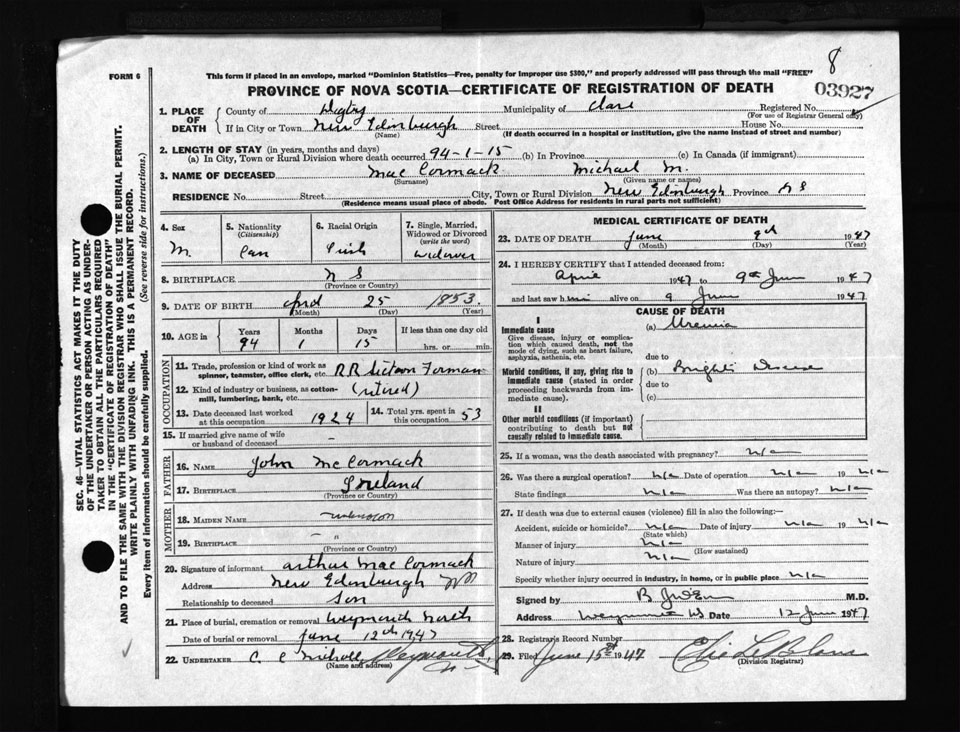 8
FORM 6
This form if placed in an envelope, marked "Dominion Statistics—Free, penalty for improper use $300," and properly addressed will pass through the mail "FREE"
PROVINCE OF NOVA SCOTIA—CERTIFICATE OF REGISTRATION OF DEATH
03927
1. PLACE OF DEATH
County of Digby Municipality of Clare Registered No.
(For use of Registrar General only)
If in City or Town New Edinburgh Street House No.
(Name) (If death occurred in a hospital or institution, give the name instead of street and number)
2. LENGTH OF STAY (in years, months and days)
(a) In City, Town or Rural Division where death occurred 94-1-15 (b) In Province (c) In Canada (if immigrant)
3. NAME OF DECEASED Mac Cormack Michael M.
(Surname) (Given name or names)
RESIDENCE No. Street City, Town or Rural Division New Edinburgh Province N S
(Residence means usual place of abode. Post Office Address for residents in rural parts not sufficient)
4. Sex M.
5. Nationality (Citizenship) Can
6. Racial Origin Irish
7. Single, Married, Widowed or Divorced (write the word) Widower
8. BIRTHPLACE N S
(Province or Country)
9. DATE OF BIRTH April 25 1853.
(Month) (Day) (Year)
10. AGE in Years Months Days If less than one day old
94 1 15 hrs. or min.
OCCUPATION
11. Trade, profession or kind of work as spinner, teamster, office clerk, etc. R.R. Section Forman
12. Kind of industry or business, as cotton-mill, lumbering, bank, etc. (retired)
13. Date deceased last worked at this occupation 1924
14. Total yrs. spent in this occupation 53
15. If married give name of wife or husband of deceased –
FATHER
16. NAME John McCormack
17. BIRTHPLACE Ireland
(Province or Country)
MOTHER
18. MAIDEN NAME unknown
19. BIRTHPLACE – "
(Province or Country)
20. Signature of informant Arthur Mac Cormack
Address New Edinburgh NS
Relationship to deceased Son
21. Place of burial, cremation or removal Weymouth North
Date of burial or removal June 12th 1947
22. UNDERTAKER C. E Nicholl, Weymouth, N.S.
(Name and address)
MEDICAL CERTIFICATE OF DEATH
23. DATE OF DEATH June 9th 1947
(Month) (Day) (Year)
24. I HEREBY CERTIFY that I attended deceased from:
April 1947 to 9th June 1947
and last saw him alive on 9 June 1947
CAUSE OF DEATH
I
Immediate cause (a) Uremia
Give disease, injury or complication which caused death, not the mode of dying, such as heart failure, asphyxia, asthenia, etc.
due to
Morbid conditions, if any, giving rise to immediate cause (stated in order proceeding backwards from immediate cause). (b) Bright's Disease
due to
(c)
II
Other morbid conditions (if important) contributing to death but not causally related to immediate cause.
25. If a woman, was the death associated with pregnancy? n/a
26. Was there a surgical operation? n/a Date of operation n/a 19 n/a
State findings n/a Was there an autopsy? n/a
27. If death was due to external causes (violence) fill in also the following:—
Accident, suicide or homicide? n/a Date of injury n/a 19 n/a
(State which)
Manner of injury n/a
(How sustained)
Nature of injury n/a
Specify whether injury occurred in industry, in home, or in public place n/a
Signed by M.D.
Address Weymouth NS Date 12 June 1947
28. Registrar's Record Number
29. Filed June 15th 1947 Elie LeBlanc
(Division Registrar)
SEC. 46—VITAL STATISTICS ACT MAKES IT THE DUTY
OF THE UNDERTAKER OR PERSON ACTING AS UNDERTAKER TO OBTAIN ALL THE PARTICULARS REQUIRED
IN THE "CERTIFICATE OF REGISTRATION OF DEATH"
AND TO FILE THE SAME WITH THE DIVISION REGISTRAR WHO SHALL ISSUE THE BURIAL PERMIT.
WRITE PLAINLY WITH UNFADING INK. THIS IS A PERMANENT RECORD.
Every item of information should be carefully supplied. (See reverse side for instructions.)